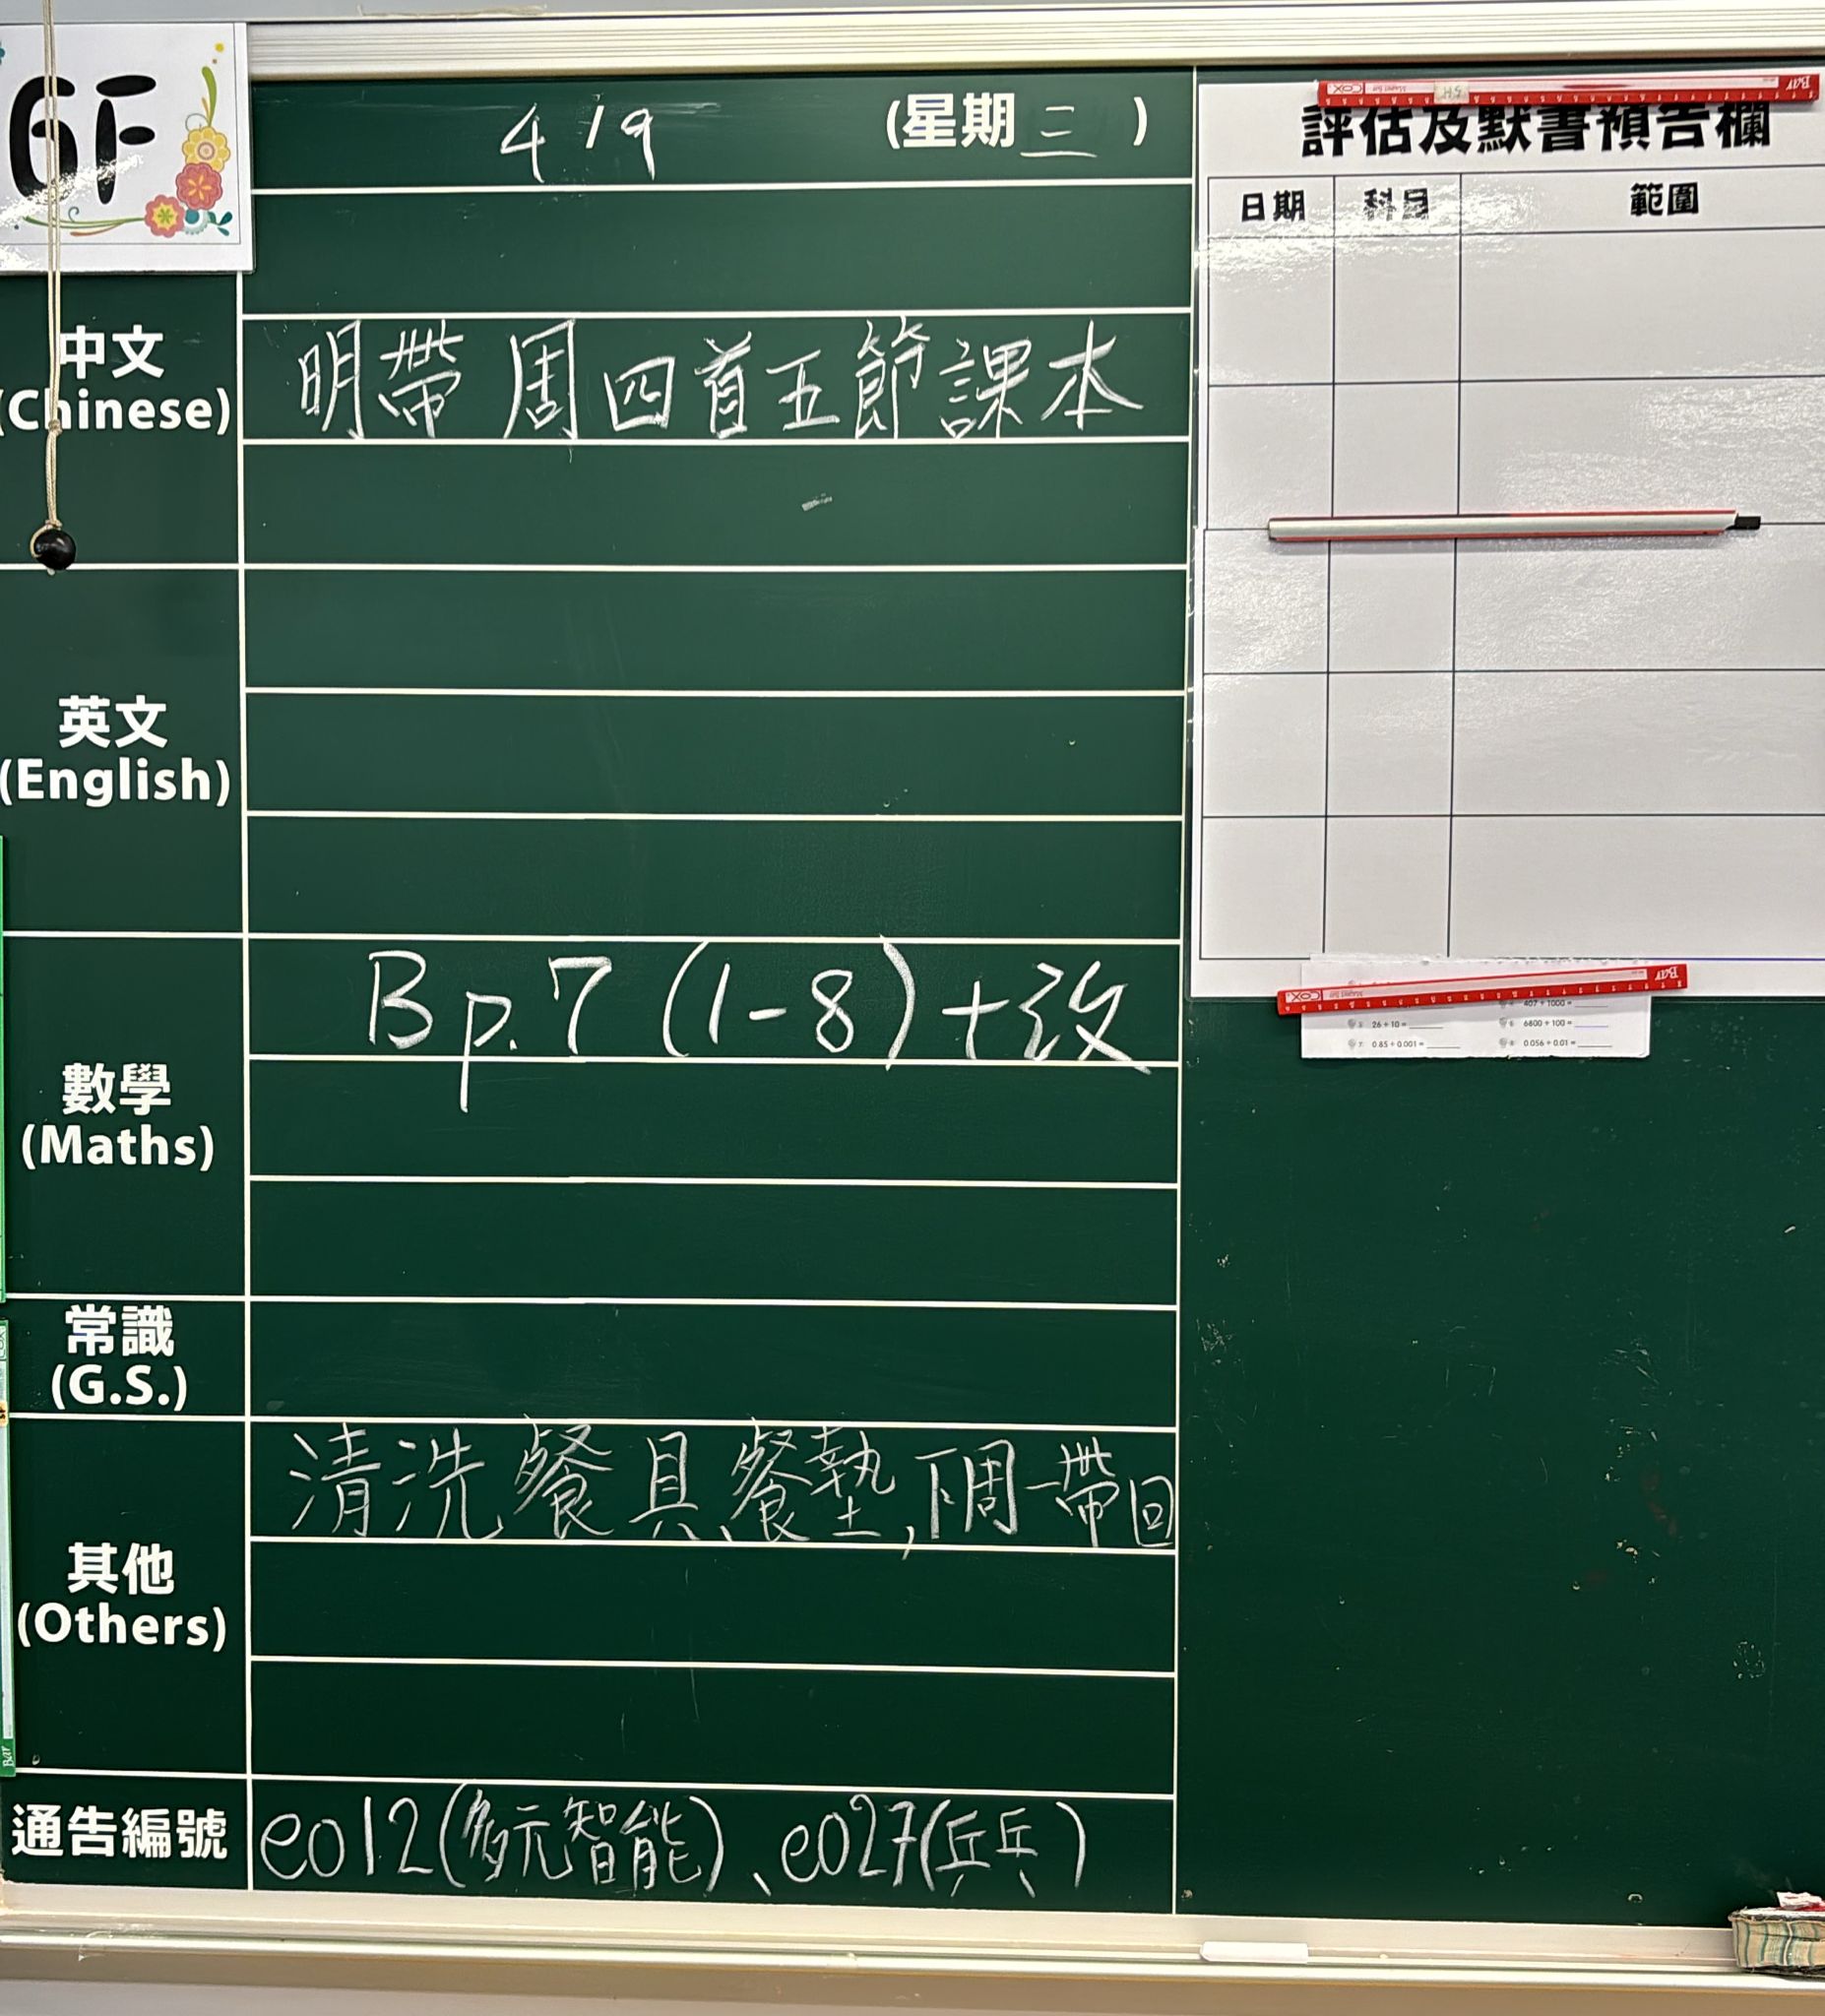 6F
4/9 (星期三)
中文
(Chinese)
明帶周四首五節課本
英文
(English)
數學
(Maths)
B p.7 (1-8)+改
常識
(G.S.)
其他
(Others)
清洗餐具、餐墊,下周一帶回
通告編號
e012(多元智能)、e027(乒乓)
評估及默書預告欄
日期 科目 範圍
407 ÷ 1000 =
26 ÷ 10 =
6800 ÷ 100 =
0.85 ÷ 0.001 =
0.056 ÷ 0.01 =
COX
Bar